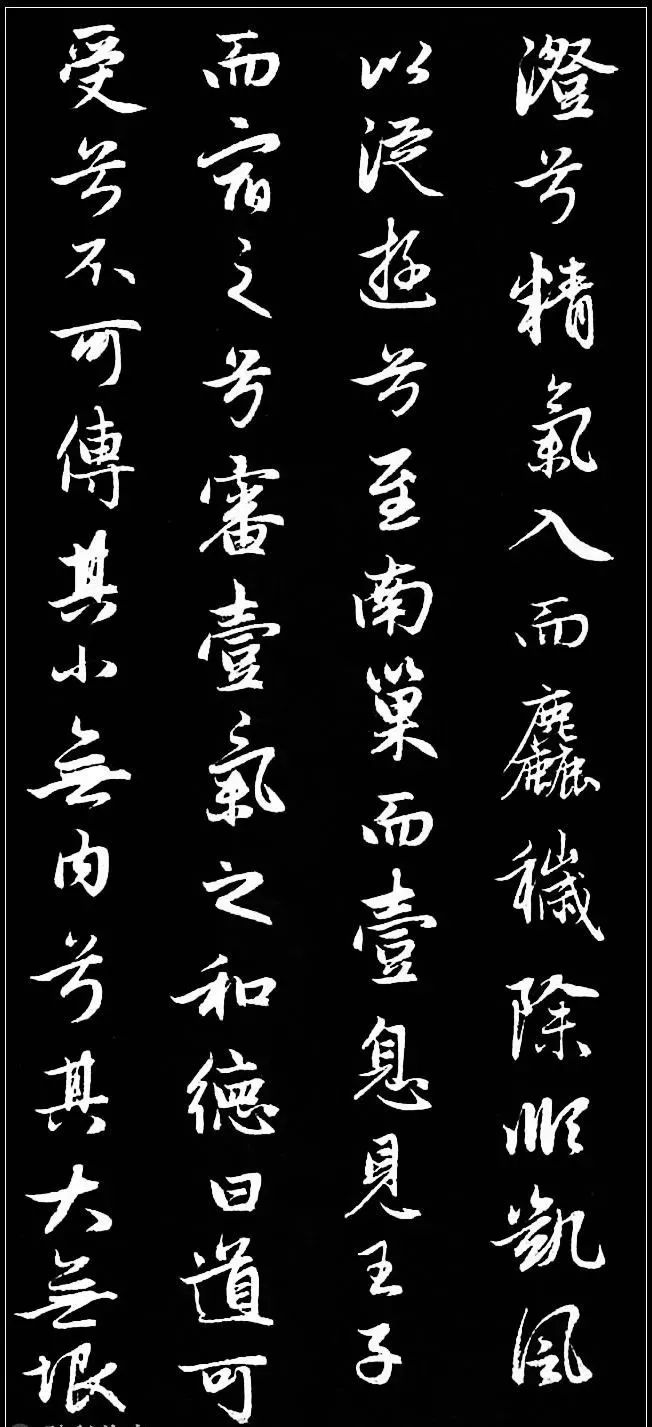 澄兮精氣入而麤穢除順凱風
以從遊兮至南巢而壹息見王子
而宿之兮審壹氣之和德曰道可
受兮不可傳其小無内兮其大無垠